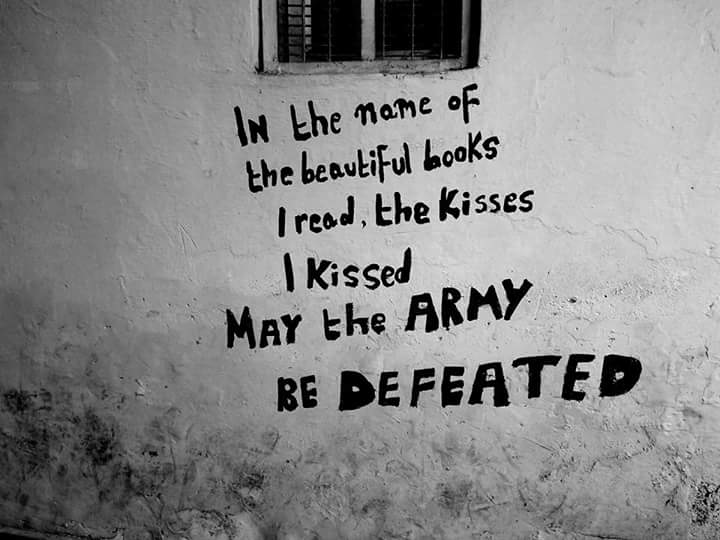 IN the name of
the beautiful books
I read, the Kisses
I Kissed
MAY the ARMY
BE DEFEATED